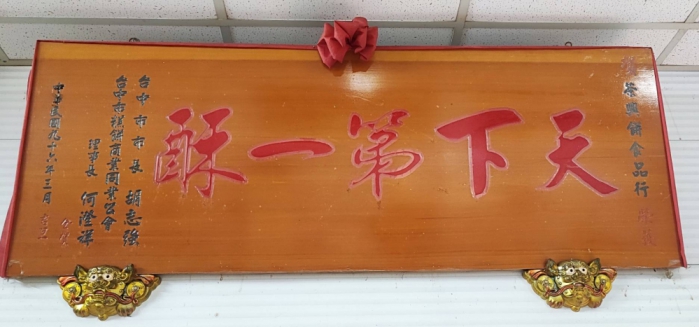 榮興餅食品行
天下第一酥
台中市市長 胡志強
台中市糕餅商業同業公會
理事長 何澄祥
中華民國九十六年三月